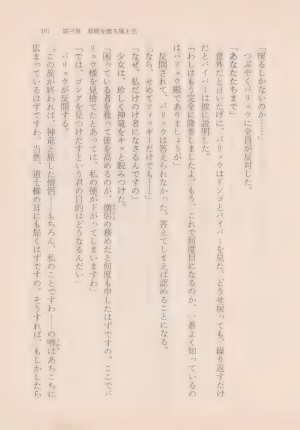 187　第三章　草原を渡る風と光
「戻るしかないのか……」
つぶやくバリュウに全員が反対した。
「あなたたちまで」
意外だと言いたげに、バリュウはドンゴとバイパーを見た。どうせ戻っても、繰り返すだけ
だとバイパーは彼に説明した。
「わしはもう完全に降参しましたよ。もう、これで何度目になるのか、一番よく知っている
はバリュウ殿でありましょうが」
反問されて、バリュウは答えられなかった。答えてしまえば認めることになる。
「なら、せめてティッギーだけでも……」
「なぜ、私だけのけ者になさるんですの」
少女は、珍しく神竜をキッと睨みつけた。
「困っている者を救って徳を高めるのが、僧侶の務めだと何度も申したはずですの。ここでバ
リュウ様を見捨てたとあっては、私の徳が下がってしまいますわ」
「では、ゴングを見つけだすという君の目的はどうなるんだい」
バリュウが反問する。
「この旅が終われば、神竜と旅した僧侶――もちろん、私のことですわ――の噂はあちこちに
広まっているはずですわ。当然、道士様の耳にも届くはずですの。そうすれば、もしかしたら